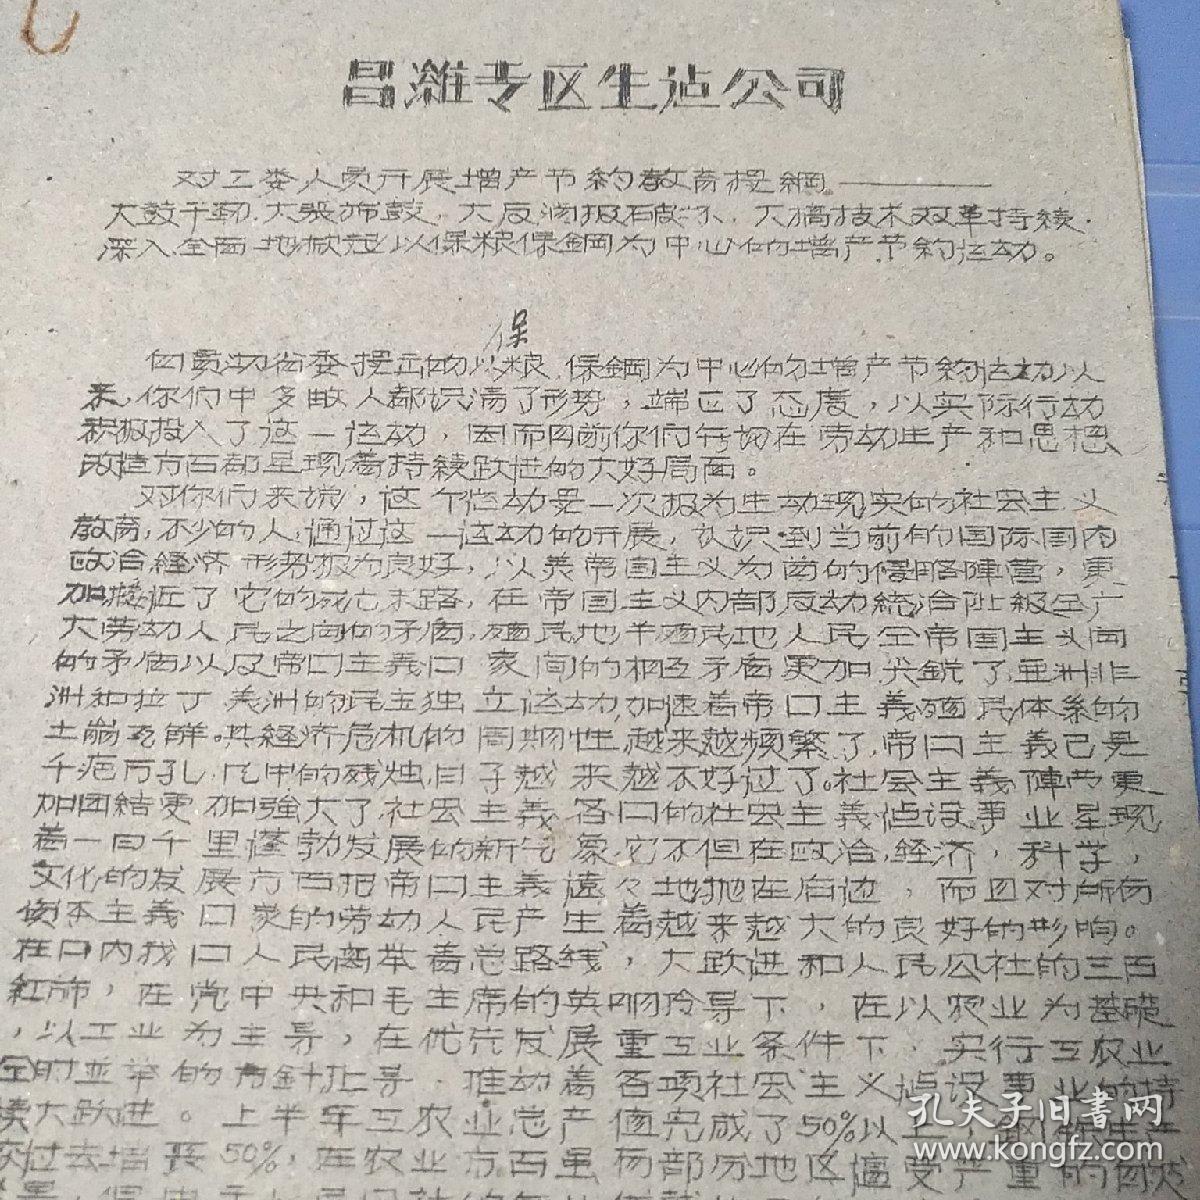 昌潍专区生建公司
对工娄人员开展增产节約教育提綱
大鼓干劲、大張旂鼓、大反浪报破坏、大搞技术双革持续
深入全面地掀起以保粮保鋼为中心的增产节約运动。
保
自貫彻省委提出的以粮保鋼为中心的增产节約运动以
来，你们中多数人都识清了形势，端正了态度，以实际行动
积极投入了这一运动，因而目前你们在劳动生产和思想
改造方面都呈现着持续跃进的大好局面。
对你们来说，这个运动是一次极为生动现实的社会主义
教育，不少的人，通过这一运动的开展，认识到当前的国际国内
政治経济形势极为良好，以美帝国主义为首的侵略陣营，更
加接近了它的死亡末路，在帝国主义内部反动統治阶級与广
大劳动人民之间的矛盾，殖民地半殖民地人民与帝国主义间
的矛盾以及帝口主義口家间的相互矛盾更加尖銳了，亜洲非
洲和拉丁美洲的民主独立运动，加速着帝口主義殖民体系的
土崩瓦解。其経济危机的周期性，越来越频繁了，帝口主義已是
千疮百孔，风中的残烛，日子越来越不好过了。社会主義陣营更
加团結更加強大了，社会主義各口的社会主義建设事业呈现
着一日千里蓬勃发展的新气象，它不但在政治，経济，科学，
文化的发展方面把帝口主義遠々地抛在后边，而且对所有
資本主義口家的劳动人民产生着越来越大的良好的影响。
在口内我口人民高举着总路线，大跃进和人民公社的三面
紅旂，在党中央和毛主席的英明领导下，在以农业为基礎
，以工业为主导，在优先发展重工业条件下，实行工农业
同时並举的方針指导，推动着各项社会主义建设事业的持
续大跃进。上半年工农业总产值完成了50%以上，鋼鉄生产
过去增长50%，在农业方面虽有部份地区遭受严重的自然
孔夫子旧書网
www.kongfz.com